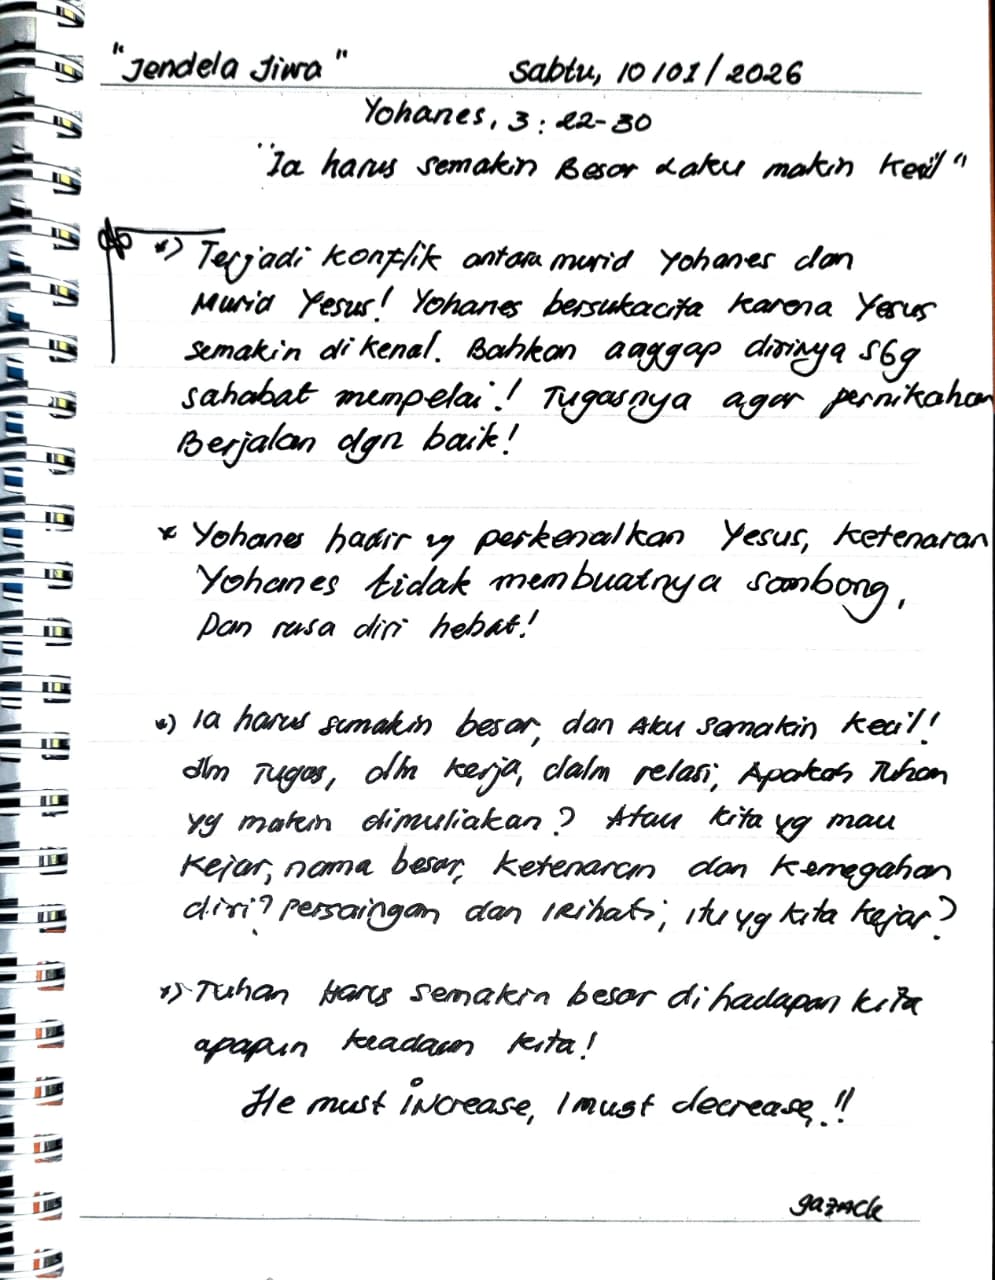 "Jendela Jiwa" Sabtu, 10/01/2026
Yohanes, 3 : 22-30
"Ia harus semakin Besar & aku makin Kecil"
*) Terjadi konflik antara murid Yohanes dan
Murid Yesus! Yohanes bersukacita karena Yesus
semakin di kenal. Bahkan aaggap dirinya sbg
sahabat mempelai! Tugasnya agar pernikahan
Berjalan dgn baik!
* Yohanes hadir perkenalkan Yesus, ketenaran
Yohanes tidak membuatnya sombong,
Dan rasa diri hebat!
*) Ia harus semakin besar, dan Aku semakin kecil!
dlm Tugas, dlm kerja, dalm relasi, Apakah Tuhan
yg makin dimuliakan? Atau kita yg mau
Kejar, nama besar, ketenaran dan kemegahan
diri? Persaingan dan Irihati, itu yg kita kejar?
*) Tuhan Harus semakin besar di hadapan kita
apapun keadaan kita!
He must increase, I must decrease,!!
gazack